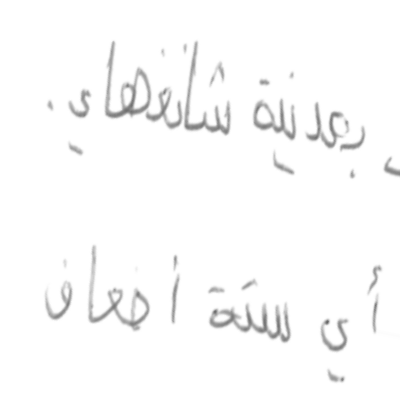 بمدينة شانغهاي.
أي ستة أضعاف